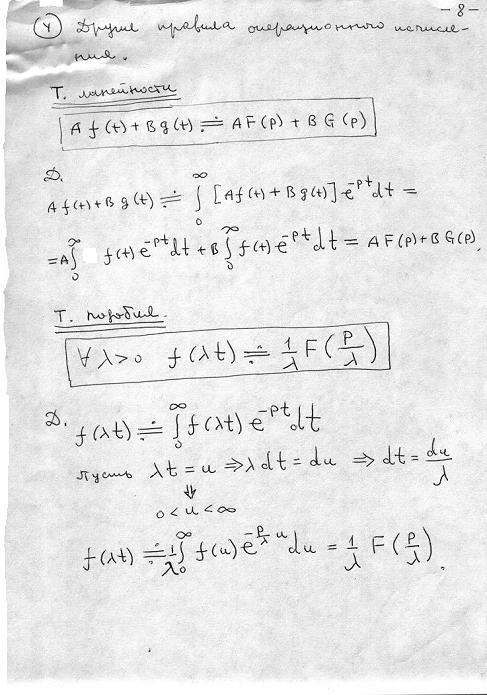 - 8 -
④ Другие правила операционного исчисле-
ния.
Т. линейности
A f(t) + B g(t) ≑ A F(p) + B G(p)
Д.
A f(t) + B g(t) ≑ ∫₀^∞ [A f(t) + B g(t)] e^{-pt} dt =
= A ∫₀^∞ f(t) e^{-pt} dt + B ∫₀^∞ f(t) e^{-pt} dt = A F(p) + B G(p)
Т. подобия.
∀ λ > 0 f(λt) ≑ 1/λ F(p/λ)
Д.
f(λt) ≑ ∫₀^∞ f(λt) e^{-pt} dt
пусть λt = u ⇒ λdt = du ⇒ dt = du/λ
⇓
0 < u < ∞
f(λt) ≑ 1/λ ∫₀^∞ f(u) e^{-p/λ u} du = 1/λ F(p/λ).